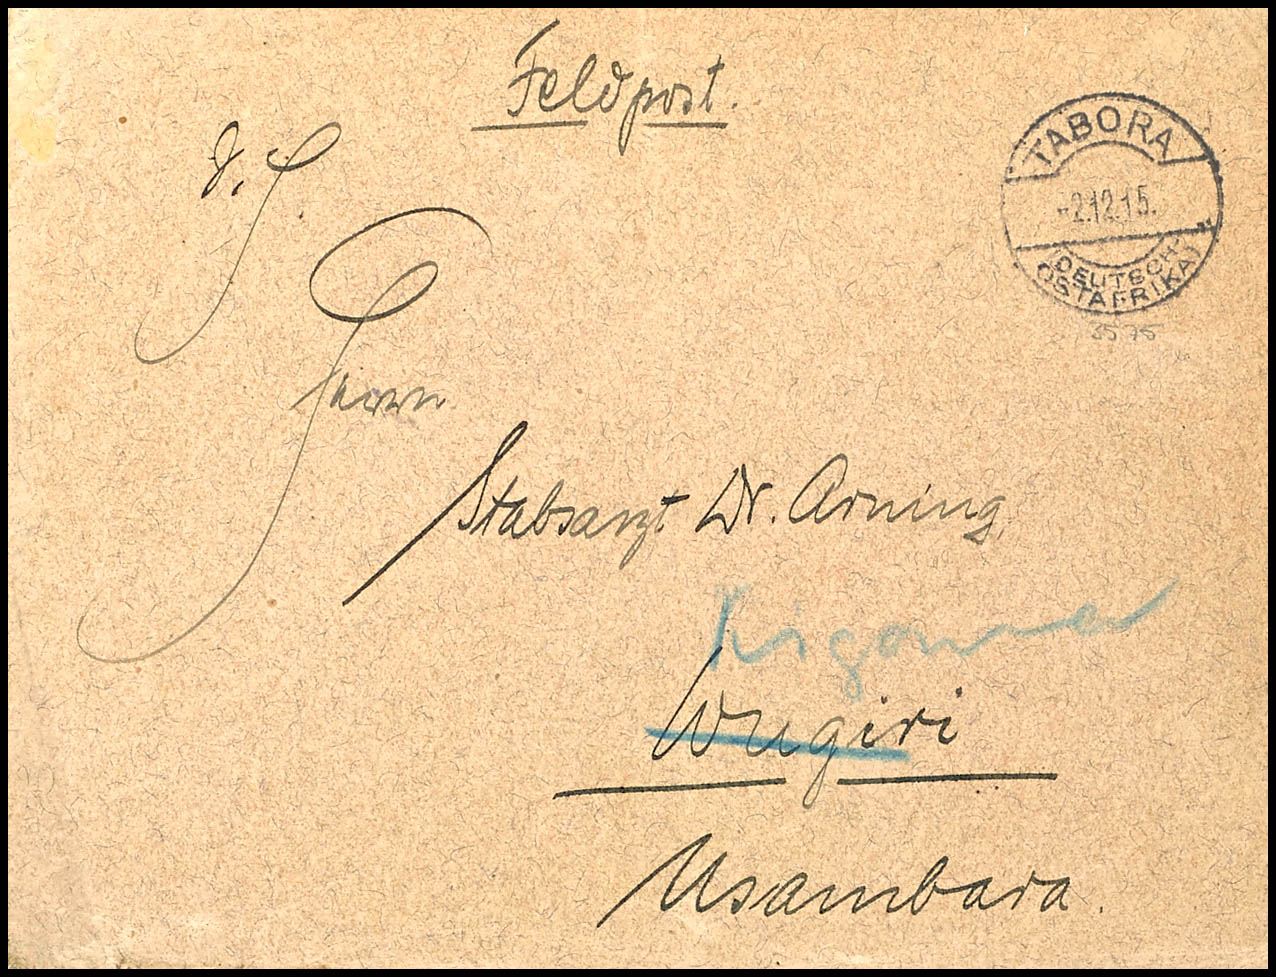 Feldpost.
TABORA
-2.12.15.
DEUTSCH-
OSTAFRIKA
Herrn
Stabsarzt Dr. Arning,
Kigoma
Wugiri
Usambara.